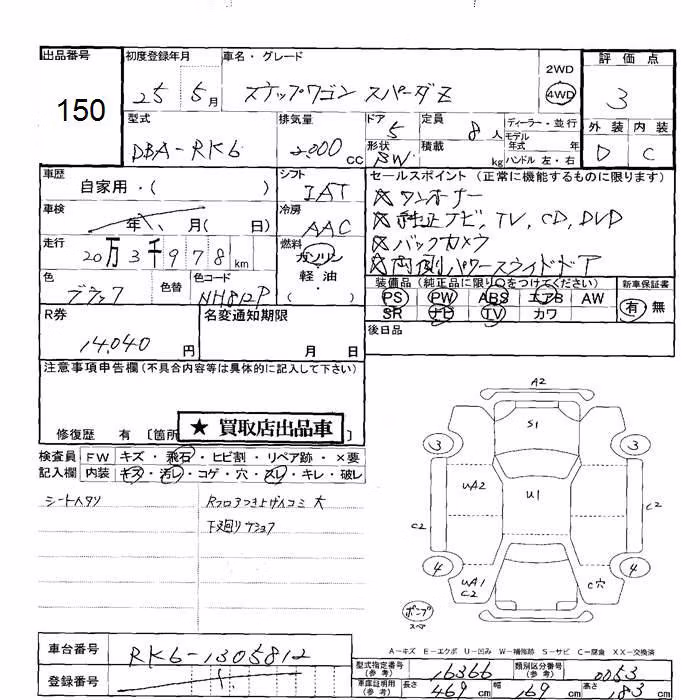 出品番号 初度登録年月 車名・グレード 2WD 評価点
150 25 5月 ステップワゴン スパーダZ 4WD 3
型式 排気量 ドア 5 定員 8人 ディーラー・並行 外装 内装
DBA-RK6 2000cc 形状 SW 積載 kg モデル年式 年 ハンドル 左・右 D C
車歴 自家用・( ) シフト IAT セールスポイント (正常に機能するものに限ります)
車検 年 月( 日) 冷房 AAC ※ワンオーナー
※純正ナビ, TV, CD, DVD
走行 20万3千978km 燃料 ガソリン 軽油・( ・ ) ※バックカメラ
※両側パワースライドドア
色 ブラック 色替 色コード NH812P 装備品(純正品に限り○をつけてください) 新車保証書
PS PW ABS エアB AW 有 無
SR ナビ TV カワ
R券 14,040円 名変通知期限 月 日 後日品
注意事項申告欄 (不具合内容等は具体的に記入して下さい)
修復歴 有 〔箇所
★ 買取店出品車
検査員 FW キズ・飛石・ヒビ割・リペア跡・×要
記入欄 内装 キズ・汚レ・コゲ・穴・スレ・キレ・破レ
シートヘタリ
下廻り
A2
S1
3 3
UA2 U1
C2 C2
4 4
UA1 C2 C穴
ポンプ
スペア
A-キズ E-エクボ U-凹み W-補修跡 S-サビ C-腐食 XX-交換済
車台番号 RK6-1305812 型式指定番号(参考) 16366 類別区分番号(参考) 0053
登録番号 車庫証明用(参考) 長さ 469cm 幅 169cm 高さ 183cm